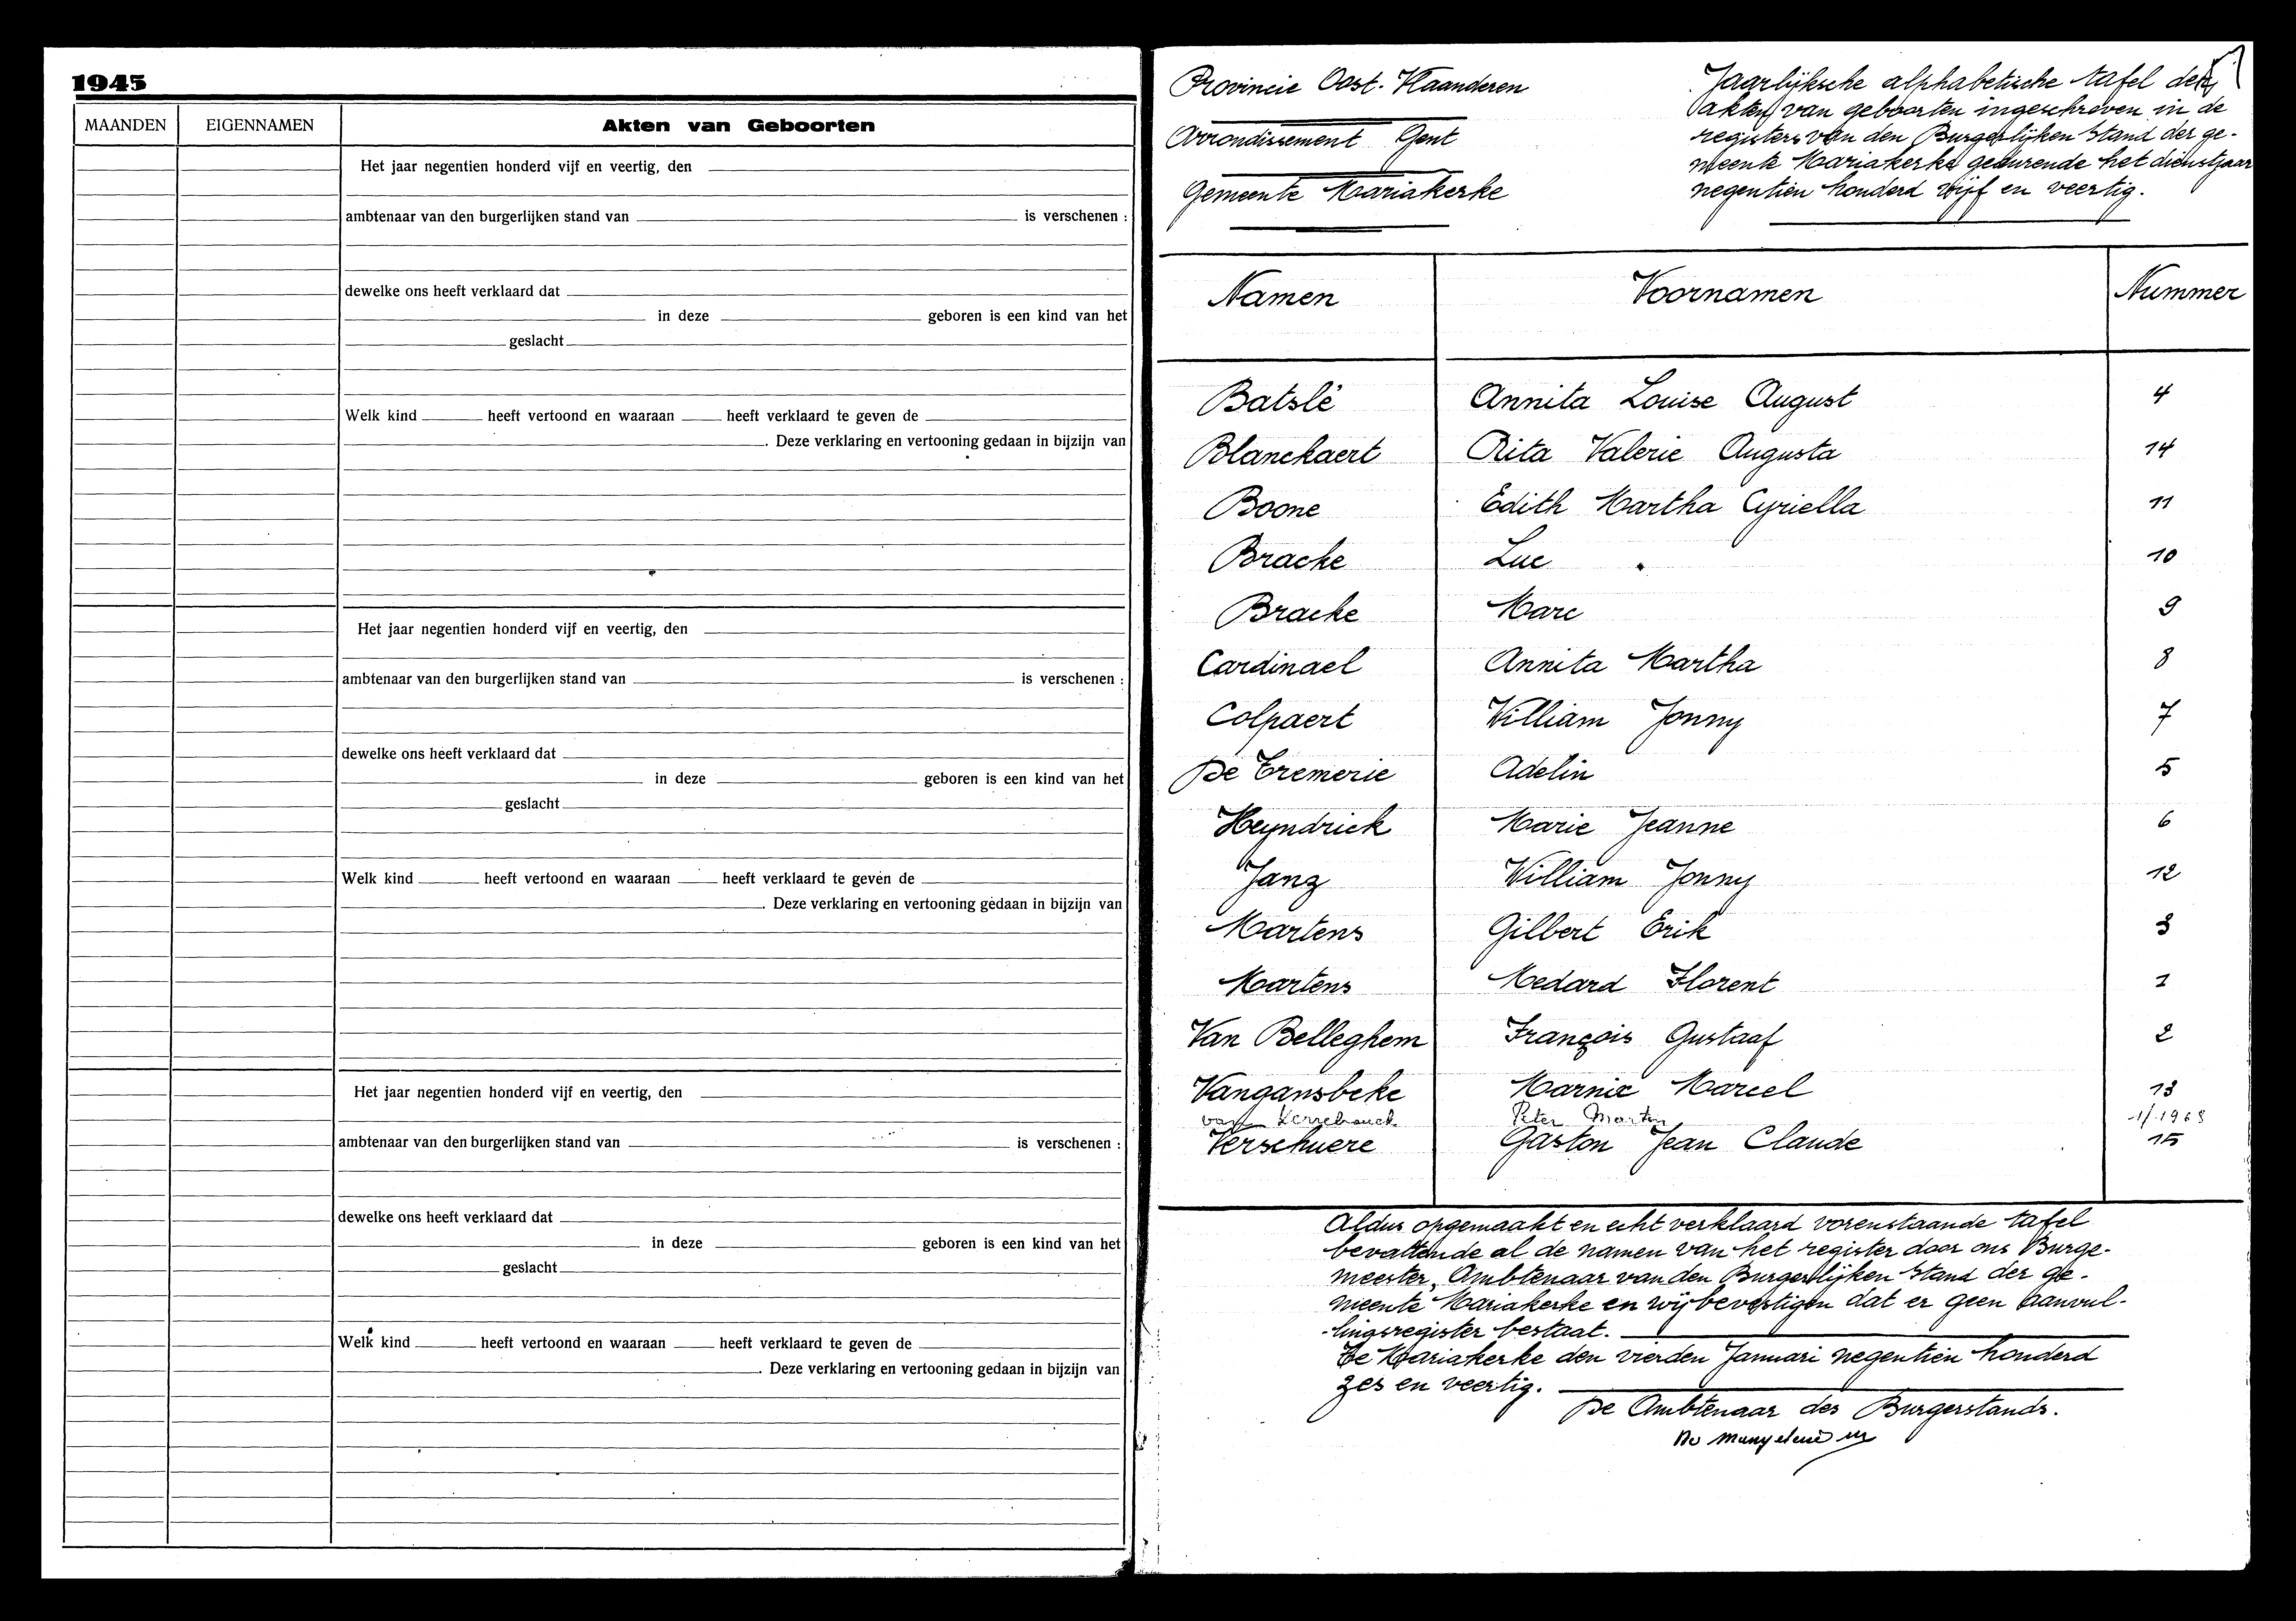 1945
MAANDEN EIGENNAMEN Akten van Geboorten
Het jaar negentien honderd vijf en veertig, den
ambtenaar van den burgerlijken stand van is verschenen :
dewelke ons heeft verklaard dat
in deze geboren is een kind van het
geslacht
Welk kind heeft vertoond en waaraan heeft verklaard te geven de
. Deze verklaring en vertooning gedaan in bijzijn van
Het jaar negentien honderd vijf en veertig, den
ambtenaar van den burgerlijken stand van is verschenen :
dewelke ons heeft verklaard dat
in deze geboren is een kind van het
geslacht
Welk kind heeft vertoond en waaraan heeft verklaard te geven de
. Deze verklaring en vertooning gedaan in bijzijn van
Het jaar negentien honderd vijf en veertig, den
ambtenaar van den burgerlijken stand van is verschenen :
dewelke ons heeft verklaard dat
in deze geboren is een kind van het
geslacht
Welk kind heeft vertoond en waaraan heeft verklaard te geven de
. Deze verklaring en vertooning gedaan in bijzijn van
Provincie Oost-Vlaanderen
Arrondissement Gent
Gemeente Mariakerke
Jaarlijksche alphabetische tafel der
akten van geboorten ingeschreven in de
registers van den Burgerlijken Stand der ge-
meente Mariakerke gedurende het dienstjaar
negentien honderd vijf en veertig.
Namen Voornamen Nummer
Batslé Annita Louise August 4
Blanckaert Rita Valerie Augusta 14
Boone Edith Martha Cyriella 11
Bracke Luc 10
Bracke Marc 9
Cardinael Annita Martha 8
Colpaert William Jonny 7
De Tremerie Adelin 5
Heyndrick Marie Jeanne 6
Janz William Jonny 12
Martens Gilbert Erik 3
Martens Medard Florent 1
Van Belleghem François Gustaaf 2
Vangansbeke Marnix Marcel 13
van Kerrebrouck Peter Martin 1/1968
Verschuere Gaston Jean Claude 15
Aldus opgemaakt en echt verklaard vorenstaande tafel
bevattende al de namen van het register door ons Burge-
meester, Ambtenaar van den Burgerlijken Stand der ge-
meente Mariakerke en wij bevestigen dat er geen aanvul-
lingsregister bestaat.
Te Mariakerke den vierden Januari negentien honderd
zes en veertig.
De Ambtenaar des Burgerstands.